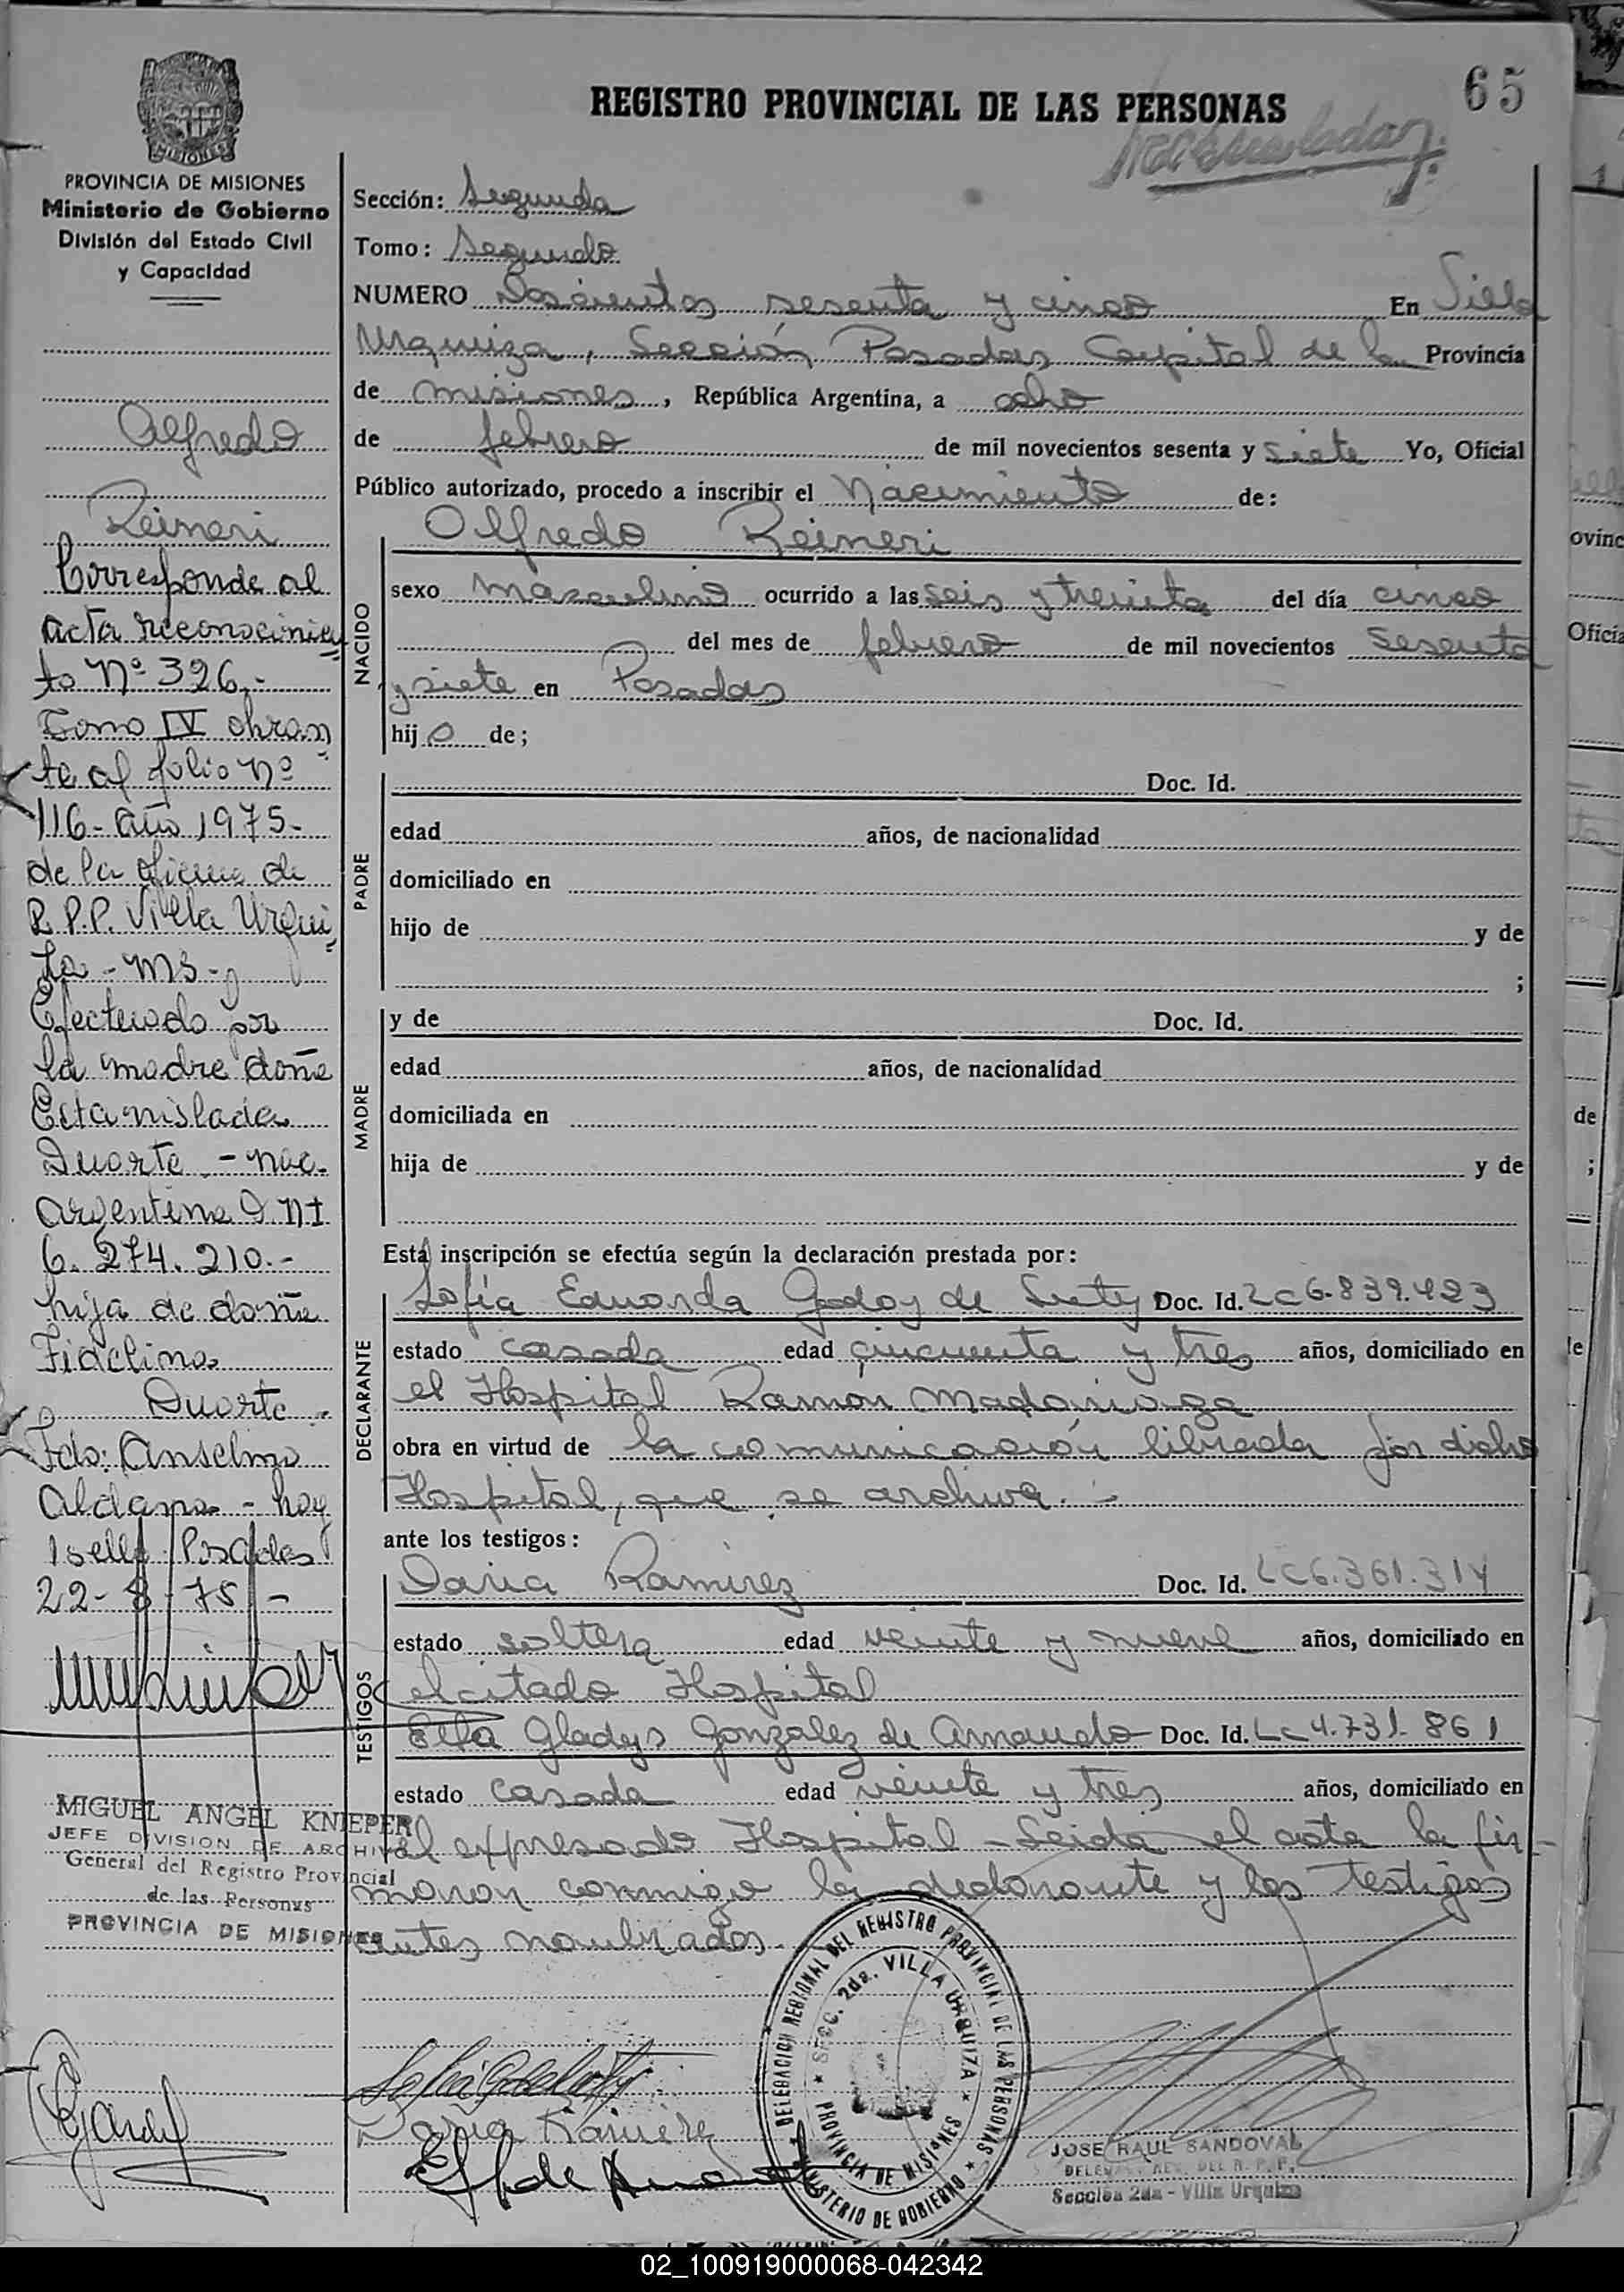 65
REGISTRO PROVINCIAL DE LAS PERSONAS
MISIONES
PROVINCIA DE MISIONES
Ministerio de Gobierno
División del Estado Civil
y Capacidad
Alfredo
Reineri
Corresponde al
acta reconocimien
to Nº 326,-
Tomo IV obran
te al folio nº
116- año 1975-
de la oficina de
R.P.P. Villa Urqui
za - ms -
Efectuado por
la madre doña
Estanislada
Duarte - nac.
argentina D.N.I
6.274.210.-
hija de doña
Fidelina
Duarte.
Fdo: Anselmo
Aldana - hay
1 sello Posadas
22-8-75-
MIGUEL ANGEL KNIEPER
JEFE DIVISION DE ARCHIVO
General del Registro Provincial
de las Personas
PROVINCIA DE MISIONES
Sección: Segunda
Tomo: Segundo
NUMERO Doscientos sesenta y cinco En Villa
Urquiza, Sección Posadas Capital de la Provincia
de misiones, República Argentina, a ocho
de febrero de mil novecientos sesenta y siete Yo, Oficial
Público autorizado, procedo a inscribir el Nacimiento de:
NACIDO
Alfredo Reineri
sexo masculino ocurrido a las seis y treinta del día cinco
del mes de febrero de mil novecientos sesenta
y siete en Posadas
hijo de;
PADRE
Doc. Id.
edad años, de nacionalidad
domiciliado en
hijo de y de
;
MADRE
y de Doc. Id.
edad años, de nacionalidad
domiciliada en
hija de y de
Esta inscripción se efectúa según la declaración prestada por:
DECLARANTE
Sofía Eduarda Godoy de Doc. Id. LC 6.839.423
estado casada edad cincuenta y tres años, domiciliado en
el Hospital Ramón Madariaga
obra en virtud de la comunicación librada por dicho
Hospital, que se archiva.-
ante los testigos:
TESTIGOS
Daria Ramirez Doc. Id. LC 6.361.314
estado soltera edad veinte y nueve años, domiciliado en
el citado Hospital
Elba Gladys Gonzalez de Arnaudo Doc. Id. LC 4.731.861
estado casada edad veinte y tres años, domiciliado en
el expresado Hospital - Leida el acta la fir-
maron conmigo la declarante y los testigos
antes nombrados.
DELEGACION REGIONAL DEL REGISTRO PROVINCIAL DE LAS PERSONAS
SECC. 2da. VILLA URQUIZA
PROVINCIA DE MISIONES
MINISTERIO DE GOBIERNO
Daria Ramirez
JOSE RAUL SANDOVAL
Sección 2da - Villa Urquiza
02_100919000068-042342